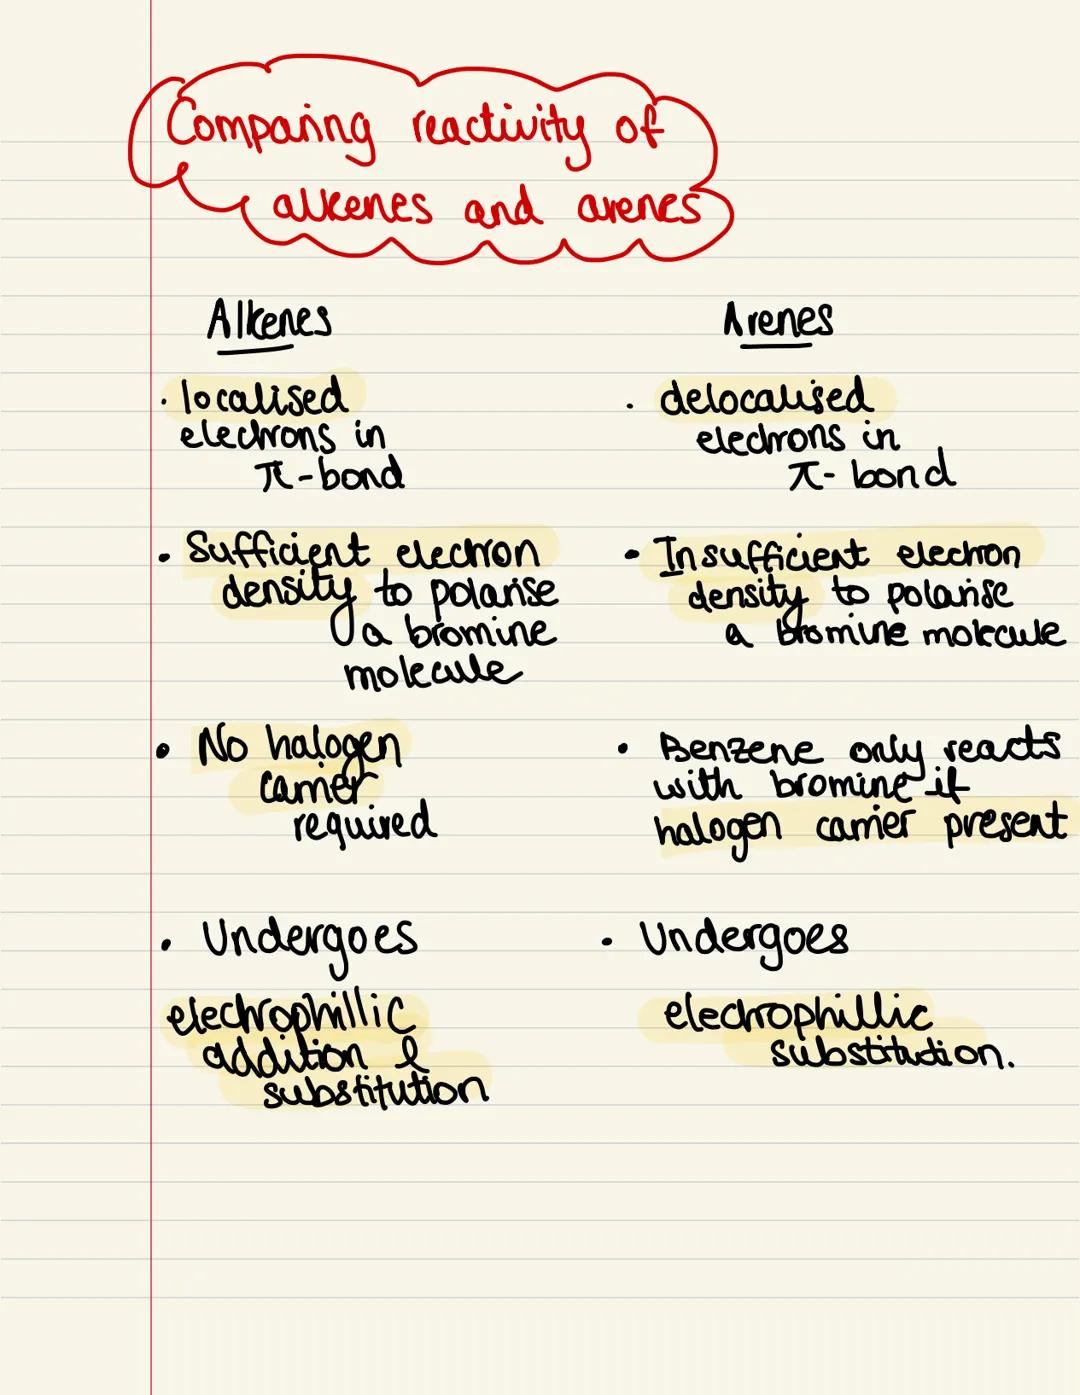 Comparing reactivity of
alkenes and arenes
Alkenes
Arenes
· localised
electrons in
π-bond
· delocalised
electrons in
π-bond
• Sufficient electron
density to polarise
a bromine
molecule
• Insufficient electron
density to polarise
a bromine molecule
• No halogen
carrier
required
• Benzene only reacts
with bromine if
halogen carrier present
• Undergoes
electrophillic
addition &
substitution
• Undergoes
electrophillic
substitution.